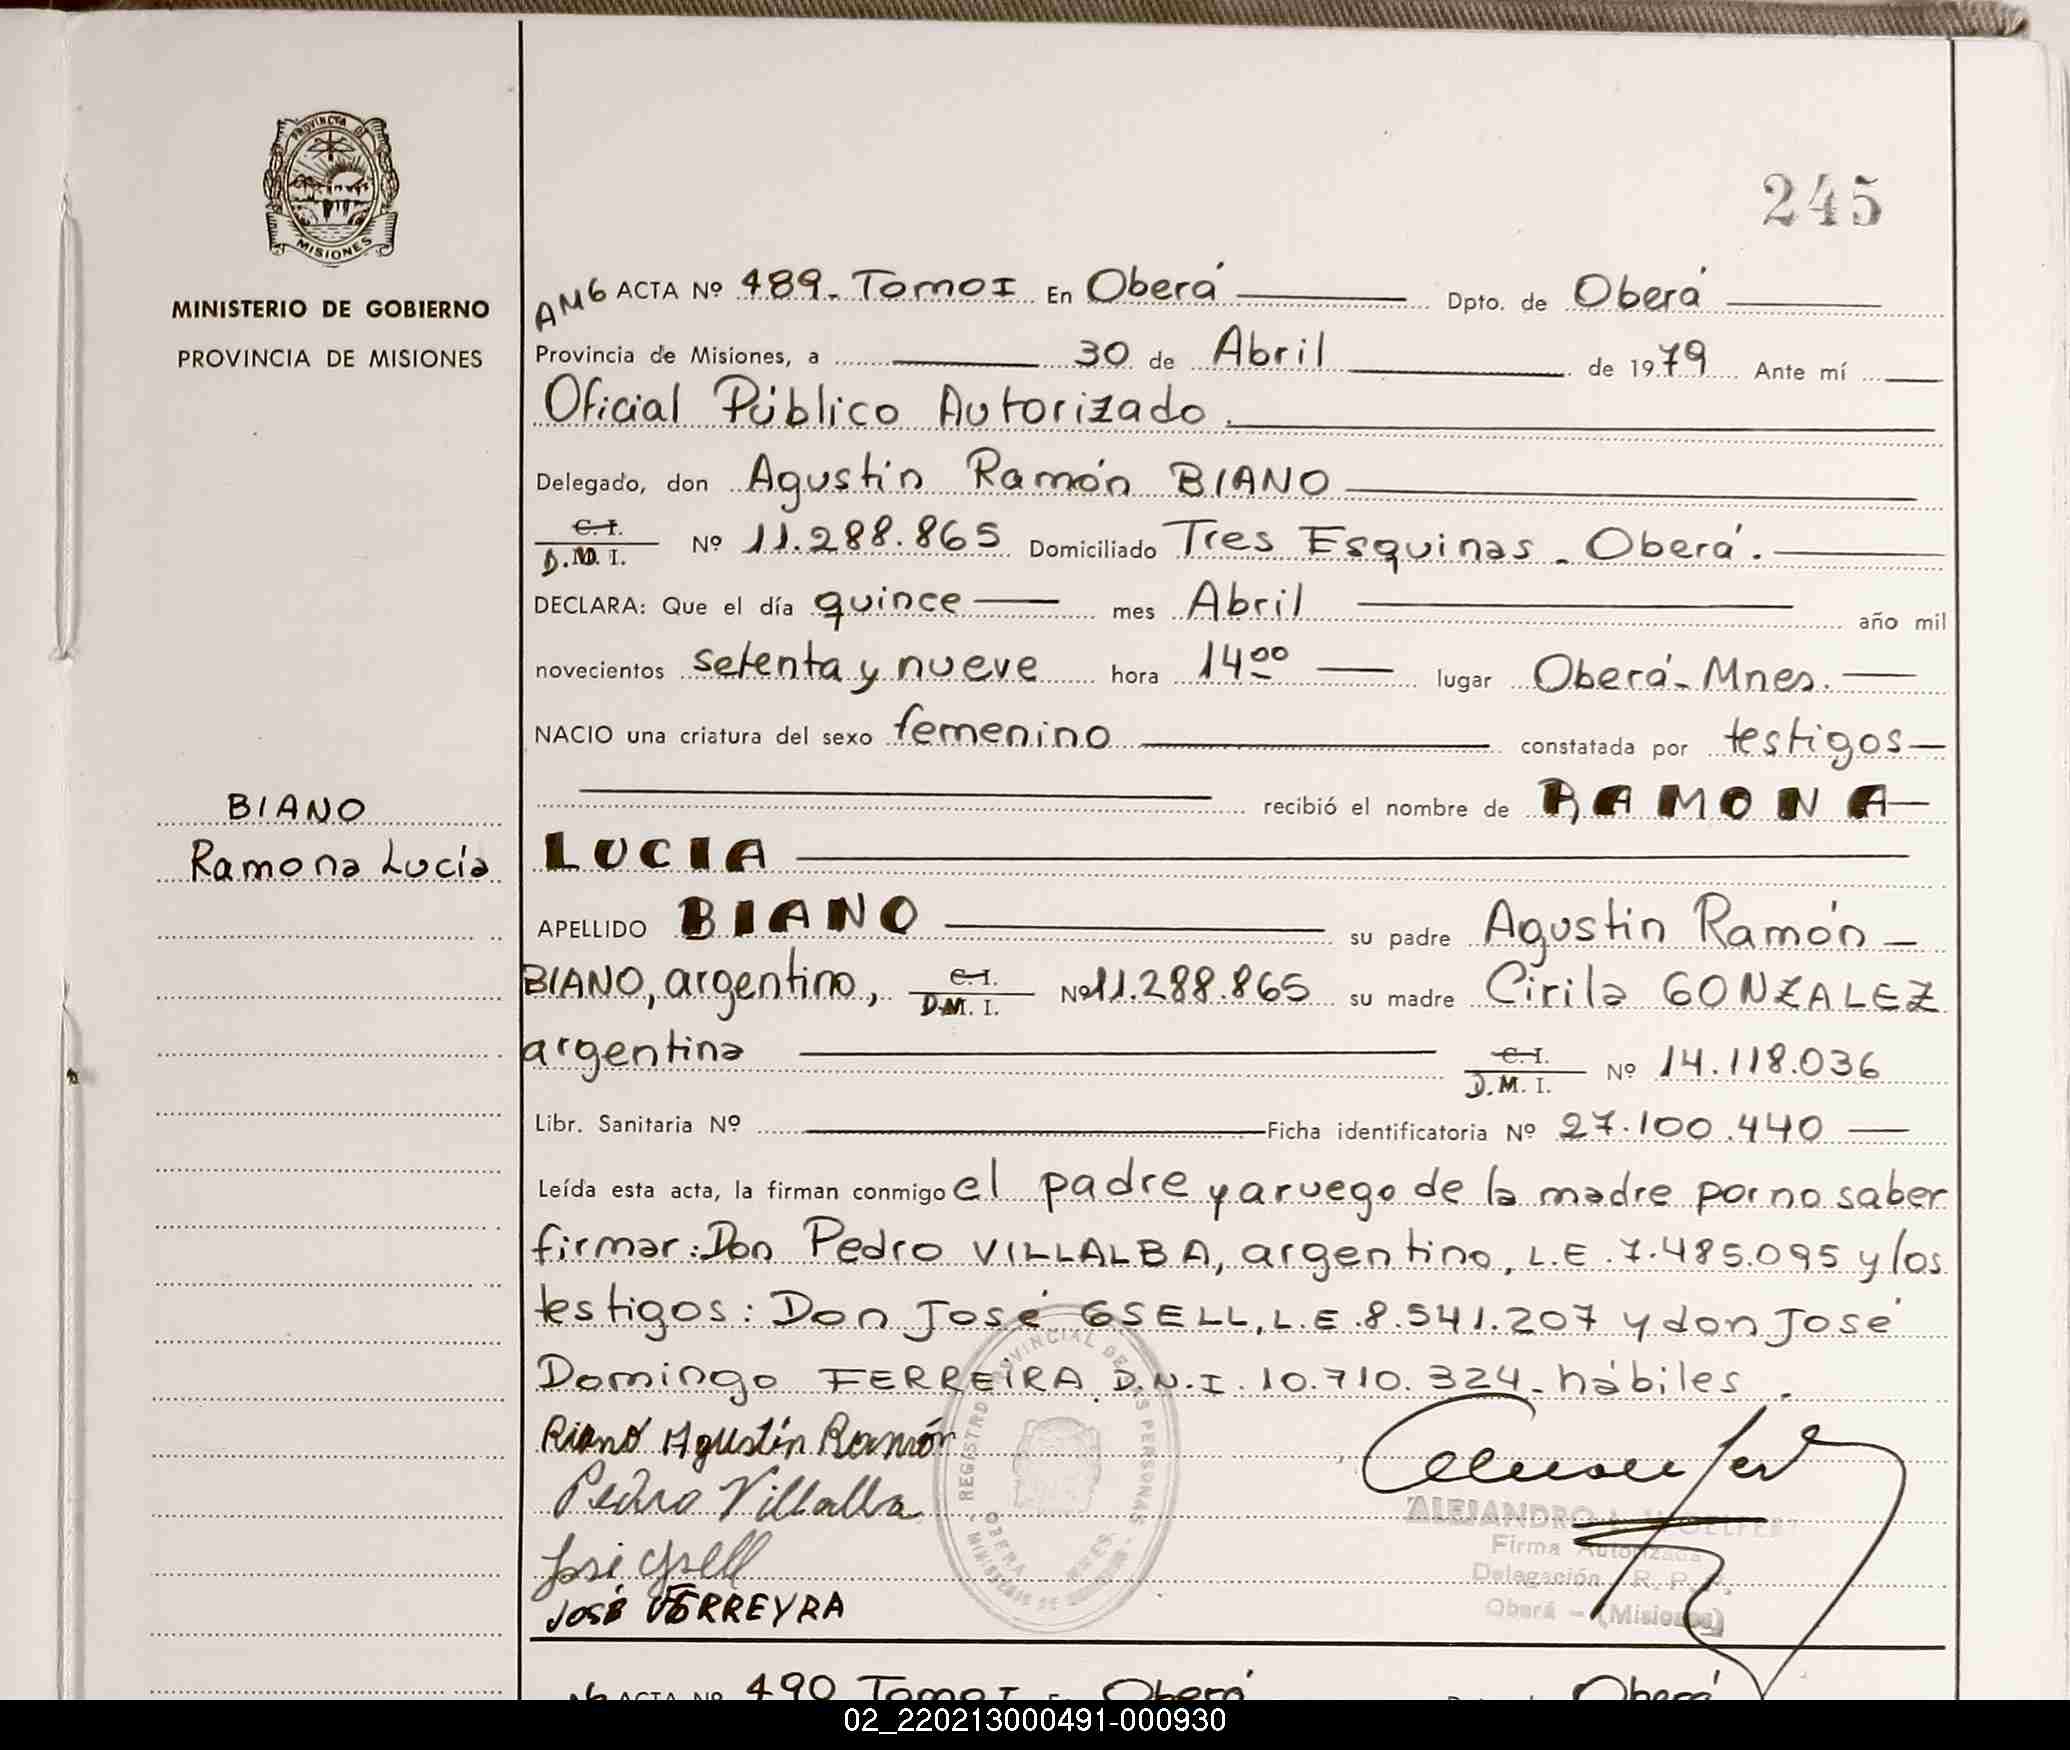 PROVINCIA DE
MISIONES
MINISTERIO DE GOBIERNO
PROVINCIA DE MISIONES
BIANO
Ramona Lucía
245
AM6 ACTA Nº 489_ Tomo I En Oberá Dpto. de Oberá
Provincia de Misiones, a 30 de Abril de 1979 Ante mí
Oficial Público Autorizado.
Delegado, don Agustin Ramón BIANO
C. I.
D.M. I. Nº 11.288.865 Domiciliado Tres Esquinas _ Oberá.
DECLARA: Que el día quince mes Abril año mil
novecientos setenta y nueve hora 14⁰⁰ lugar Oberá - Mnes.
NACIO una criatura del sexo femenino constatada por testigos
recibió el nombre de RAMONA
LUCIA
APELLIDO BIANO su padre Agustin Ramón
BIANO, argentino, C. I.
D.M. I. Nº 11.288.865 su madre Cirila GONZALEZ
argentina C. I.
D.M. I. Nº 14.118.036
Libr. Sanitaria Nº Ficha identificatoria Nº 27.100.440
Leída esta acta, la firman conmigo el padre y a ruego de la madre por no saber
firmar: Don Pedro VILLALBA, argentino, L.E. 7.485.095 y los
testigos: Don José GSELL, L.E. 8.541.207 y don José
Domingo FERREIRA D.N.I. 10.710.324_ hábiles.
Biano Agustín Ramón
Pedro Villalba
José Gsell
JOSÉ FERREYRA
REGISTRO PROVINCIAL DE LAS PERSONAS
OBERÁ MNES.
MINISTERIO DE GOBIERNO
ALEJANDRO
Firma Autorizada
Delegación R. P. P.
Oberá - (Misiones)
ACTA Nº 490 Tomo I En Oberá Oberá
02_220213000491-000930